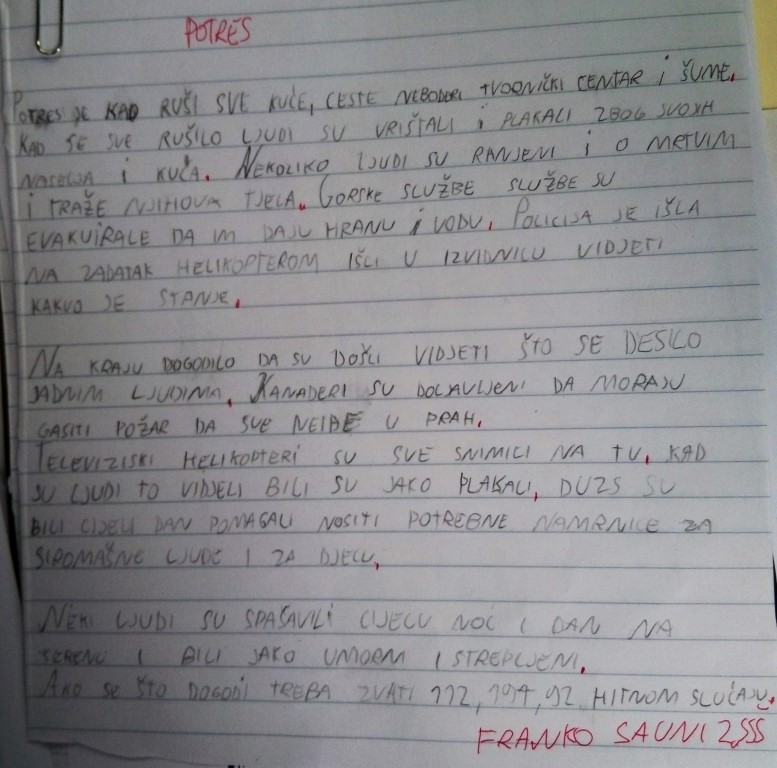 POTRES
POTRES JE KAD RUŠI SVE KUĆE, CESTE NEBODERI TVORNIČKI CENTAR I ŠUME.
KAD SE SVE RUŠILO LJUDI SU VRIŠTALI I PLAKALI ZBOG SVOJH
NASELJA I KUČA. NEKOLIKO LJUDI SU RANJENI I O METVIM
I TRAŽE NJIHOVA TJELA. GORSKE SLUŽBE SLUŽBE SU
EVAKUIRALE DA IM DAJU HRANU I VODU. POLICIJA JE IŠLA
NA ZADATAK HELIKOPTEROM IŠLI U IZVIDNICU VIDJETI
KAKVO JE STANJE.
NA KRAJU DOGODILO DA SU DOŠLI VIDJETI ŠTO SE DESILO
JADNIM LJUDIMA. KANADERI SU DOLAVLJENI DA MORAJU
GASITI POŽAR DA SVE NEIDE U PRAH.
TELEVIZISKI HELIKOPTERI SU SVE SNIMILI NA TV. KAD
SU LJUDI TO VIDJELI BILI SU JAKO PLAKALI. DUZS SU
BILI CIJELI DAN POMAGALI NOSITI POTREBNE NAMRNICE ZA
SIROMAŠNE LJUDE I ZA DJECU.
NEKI LJUDI SU SPAŠAVILI CIJELU NOĆ I DAN NA
TERENU I BILI JAKO UMORNI I STREPLJENI.
AKO SE ŠTO DOGODI TREBA ZVATI 112, 194, 92 HITNOM SLUČAJU.
FRANKO SAUNI 2,SSS